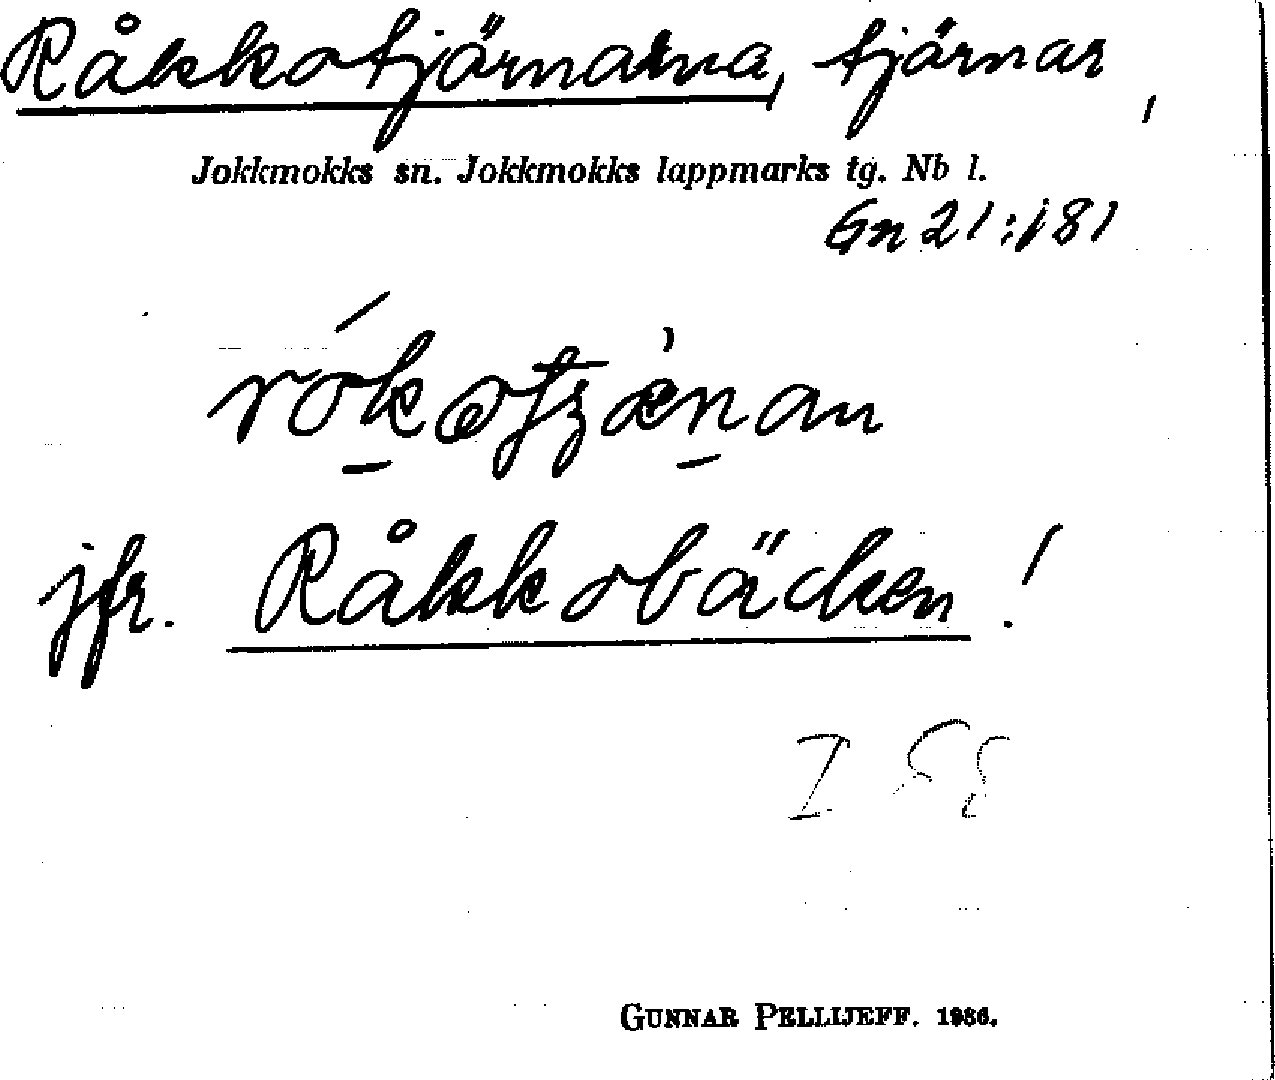 Råkkotjärnarna, tjärnar,
Jokkmokks sn. Jokkmokks lappmarks tg. Nb l.
Gn 21:181
jfr. Råkkobäcken!
GUNNAR PELLIJEFF. 1986.